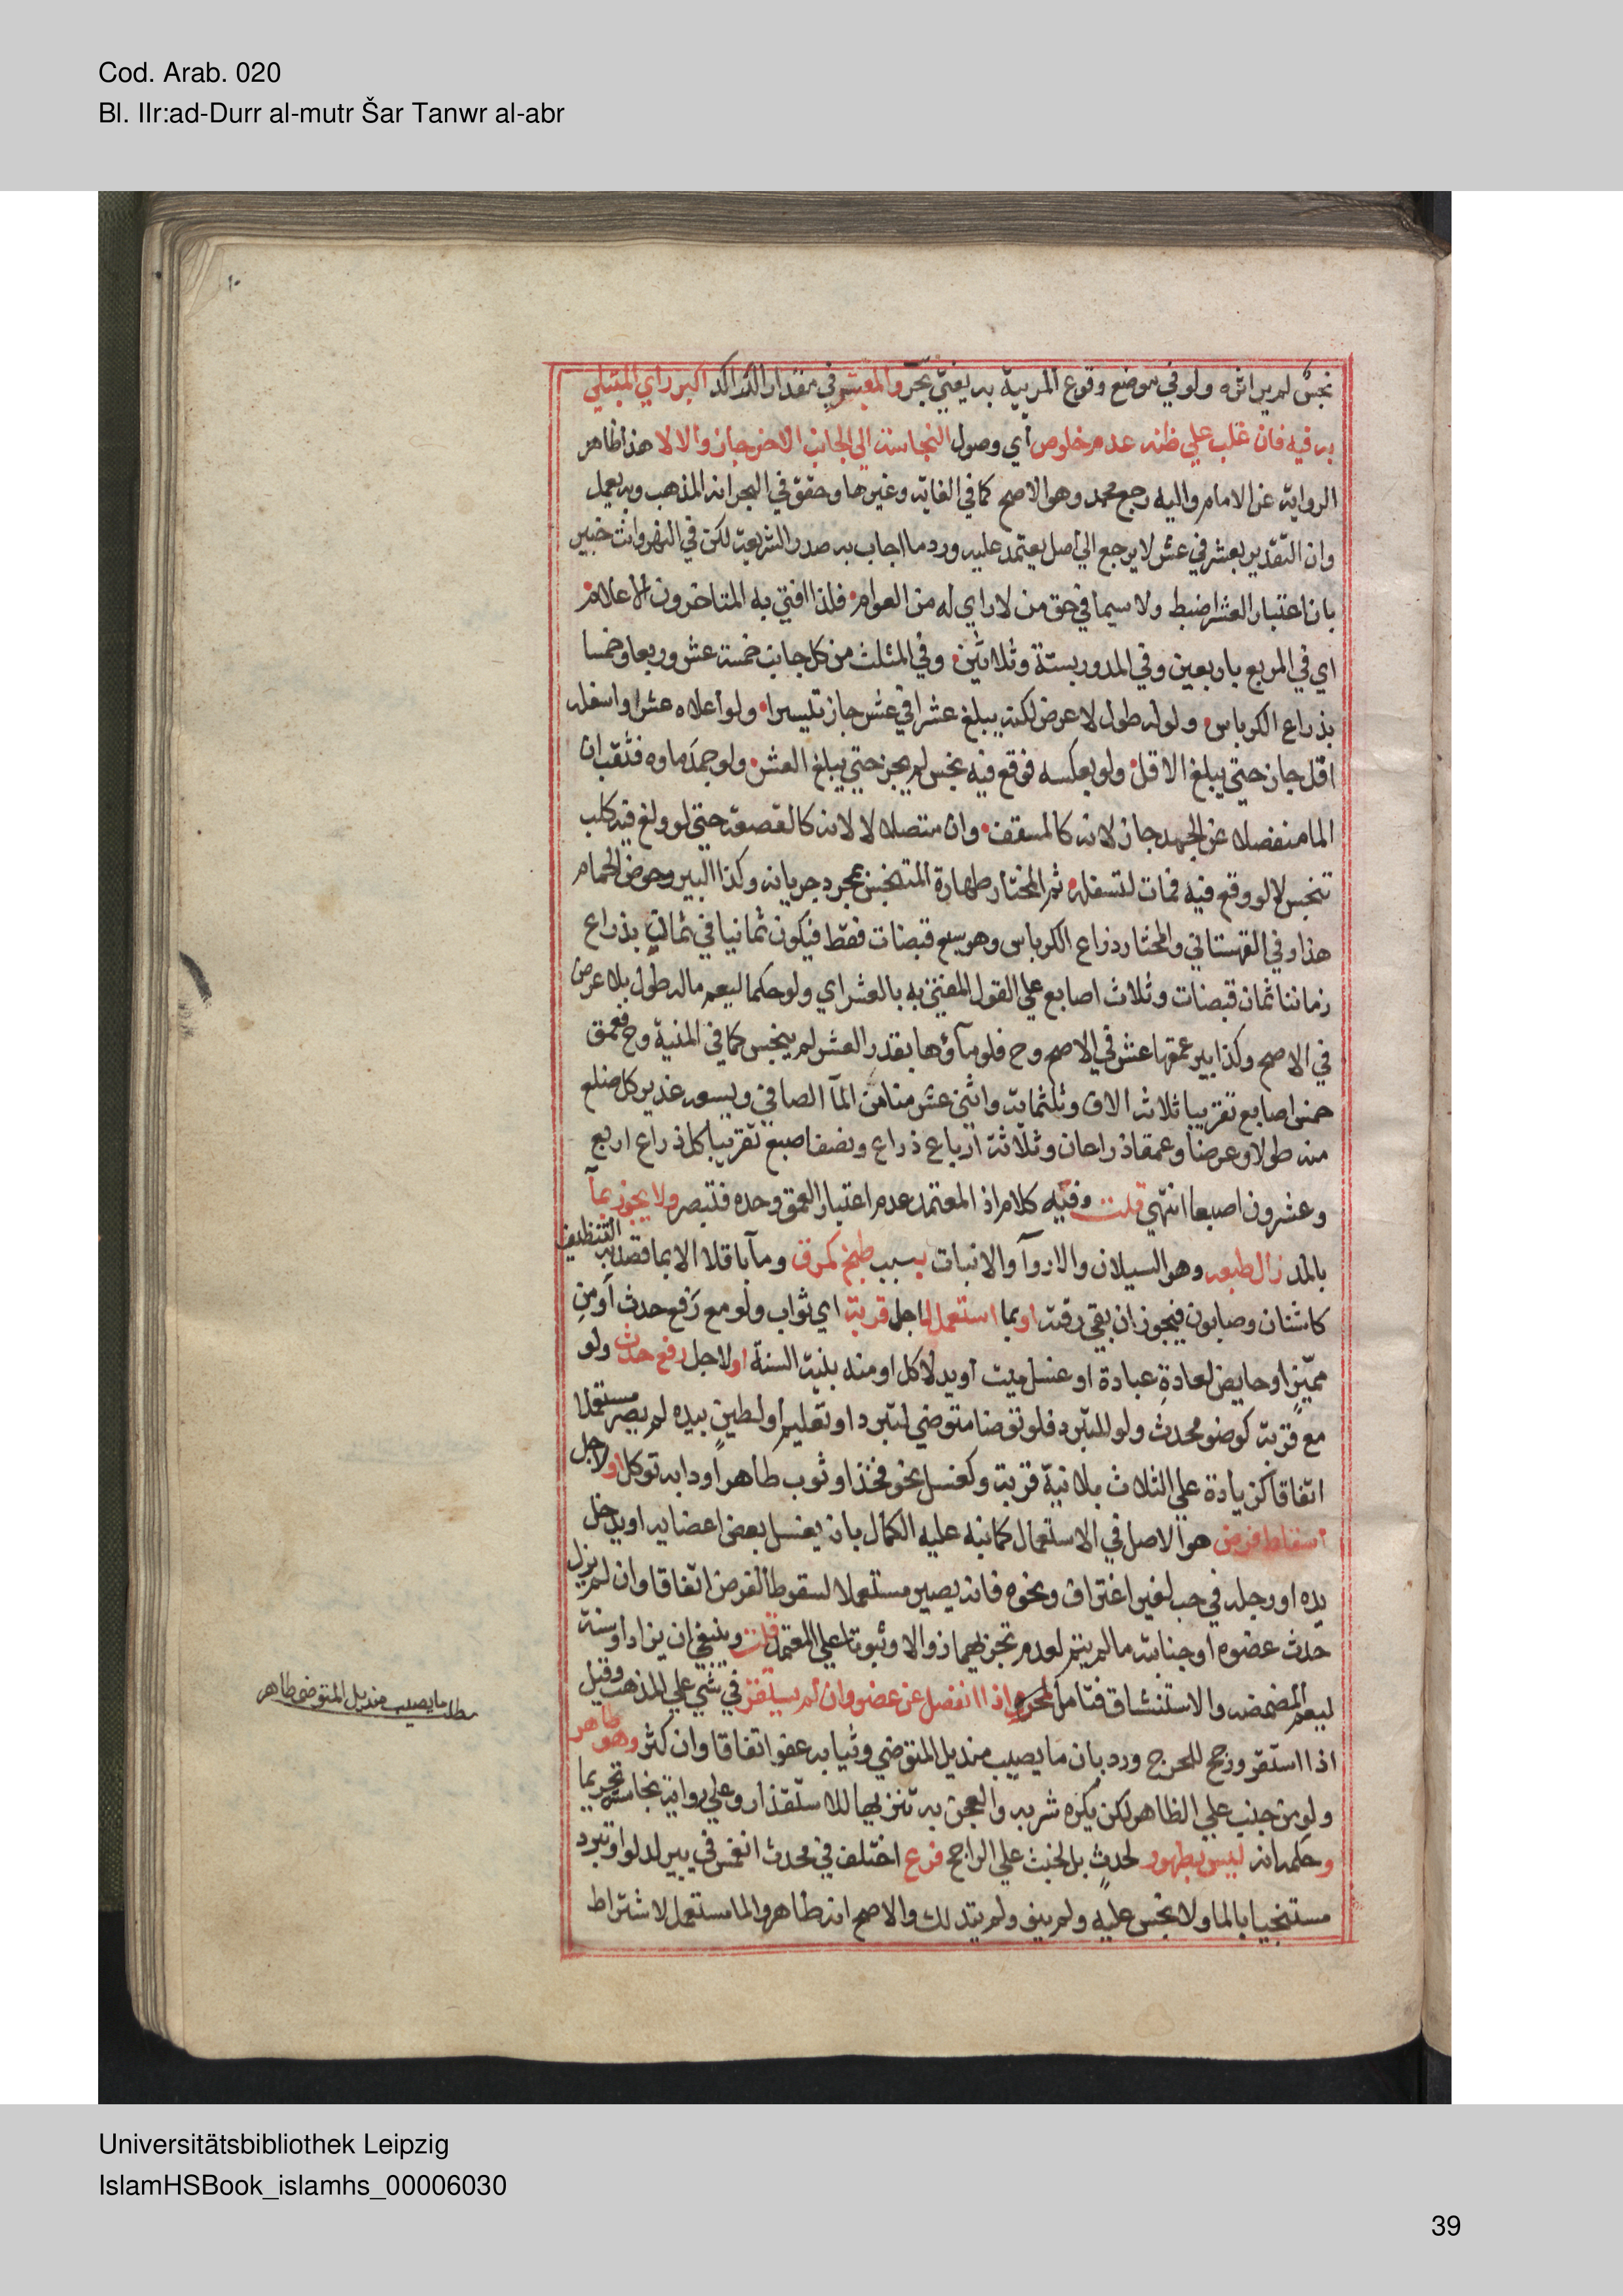 Cod. Arab. 020
Bl. IIr:ad-Durr al-mutr Šar Tanwr al-abr
١٠
نجس لم ير اثره ولو في موضع وقوع المريية به يفتي بحر والمعتبر في مقدار الراكد اكبر راي المبتلي
به فيه فان غلب علي ظنه عدم خلوص اي وصول النجاسة الي الجانب الاخر جاز والا لا هذا ظاهر
الرواية عن الامام واليه رجع محمد وهو الاصح كما في الغاية وغيرها وحقق في البحر انه المذهب وبه يعمل
وان التقدير بعشر في عشر لا يرجع الي اصل يعتمد عليه ورد ما اجاب به صدر الشريعة لكن في النهر وانت خبير
بان اعتبار العشر اضبط ولا سيما في حق من لا راي له من العوام فلذا افتي به المتاخرون الاعلام
اي في المربع باربعين وفي المدور بستة وثلاثين وفي المثلث من كل جانب خمسة عشر وربعا وخمسا
بذراع الكرباس ولو له طول لا عرض لكنه يبلغ عشرا في عشر جاز تيسيرا ولو اعلاه عشرا واسفله
اقل جاز حتي يبلغ الاقل ولو بعكسه فوقع فيه نجس لم يجز حتي يبلغ العشر ولو جمد ماوه فثقب ان
الما منفصلا عن الجمد جاز لانه كالمسقف وان متصلا لا لانه كالقصعة حتي لو ولغ فيه كلب
تنجس لا لو وقع فيه فمات لتسفله ثم المختار طهارة المتنجس بمجرد جريانه وكذا البير وحوض الحمام
هذا وفي القهستاني والمختار ذراع الكرباس وهو سبع قبضات فقط فيكون ثمانيا في ثمان بذراع
زماننا ثمان قبضات وثلاث اصابع علي القول المفتي به بالعشر اي ولو حكما ليعم ماله طول بلا عرض
في الاصح وكذا بير عمقها عشر في الاصح وح فلو ماؤها بقدر العشر لم ينجس كما في المنية وح فعمق
خمس اصابع تقريبا ثلاثة الاف وثلثماية واثني عشر منا من المآ الصافي ويسعه غدير كل ضلع
منه طولا وعرضا وعمقا ذراعان وثلاثة ارباع ذراع ونصف اصبع تقريبا كل ذراع اربع
وعشرون اصبعا انتهي قلت وفيه كلام اذ المعتمد عدم اعتبار العمق وحده فتبصر ولا يجوز بمآ
بالمد زال طبعه وهو السيلان والاروآ والانبات بسبب طبخ كمرق ومآ باقلا الا بما قصد به التنظيف
كاشنان وصابون فيجوز ان بقي رقته او بما استعمل لاجل قربة اي ثواب ولو مع رفع حدث او من
مميز او حايض لعادة عبادة او غسل ميت او يد لاكل او منه بنية السنة او لاجل رفع حدث ولو
مع قربة كوضو محدث ولو للتبرد فلو توضا متوضي لتبرد او تعليم او لطين بيده لم يصر مستعملا
اتفاقا كزيادة علي الثلاث بلا نية قربة وكغسل نحو فخذ او ثوب طاهر او دابه توكل او لاجل
اسقاط فرض هو الاصل في الاستعمال كما نبه عليه الكمال بان يغسل بعض اعضايه او يدخل
يده او رجله في حب لغير اغتراف ونحوه فانه يصير مستعملا لسقوط الفرض اتفاقا وان لم يزل
حدث عضوه او جنابته ما لم يتم لعدم تجزيهما زوالا وثبوتا علي المعتمد قلت وينبغي ان يزاد او سنة
ليعم المضمضه والاستنشاق فتامل اذا انفصل عن عضو وان لم يستقر في شي علي المذهب وقيل
اذا استقر ورجح للحرج ورد بان ما يصيب منديل المتوضي وثيابه عفو اتفاقا وان كثر وهو طاهر
ولو من جنب علي الظاهر لكن يكره شربه والعجن به تنزيها للاستقذار وعلي رواية نجاسته تحريما
وحكمه انه ليس بطهور لحدث بل لخبث علي الراجح فرع اختلف في محدث انغمس في بير لدلو او تبرد
مستنجيا بالما ولا نجس عليه ولم ينو ولم يتدلك والاصح انه طاهر والما مستعمل لاشتراط
مطلـ ما يصيب منديل المتوضي طاهر
Universitätsbibliothek Leipzig
IslamHSBook_islamhs_00006030
39